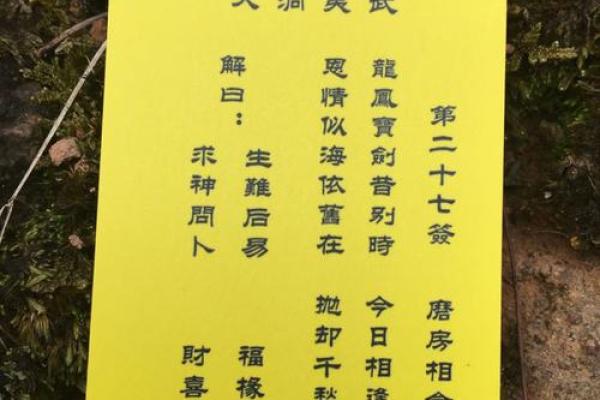 武夷洞天
第二十七簽 磨房相
龍鳳寶劍昔别時 今日相逢
恩情似海依舊在 拋却千秋
解曰：
生難后易 福椽
求神問卜 財喜